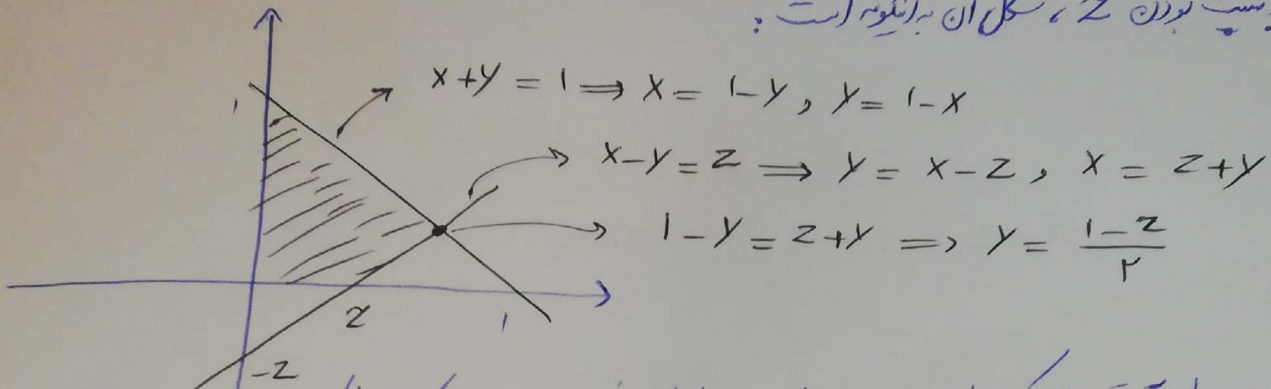 مثبت بودن z ، شکل آن به اینگونه است :
x+y = ۱ ⇒ x = ۱-y , y = ۱-x
x-y = z ⇒ y = x-z , x = z+y
۱-y = z+y ⇒ y = (۱-z)/۲
۱
z
۱
-z